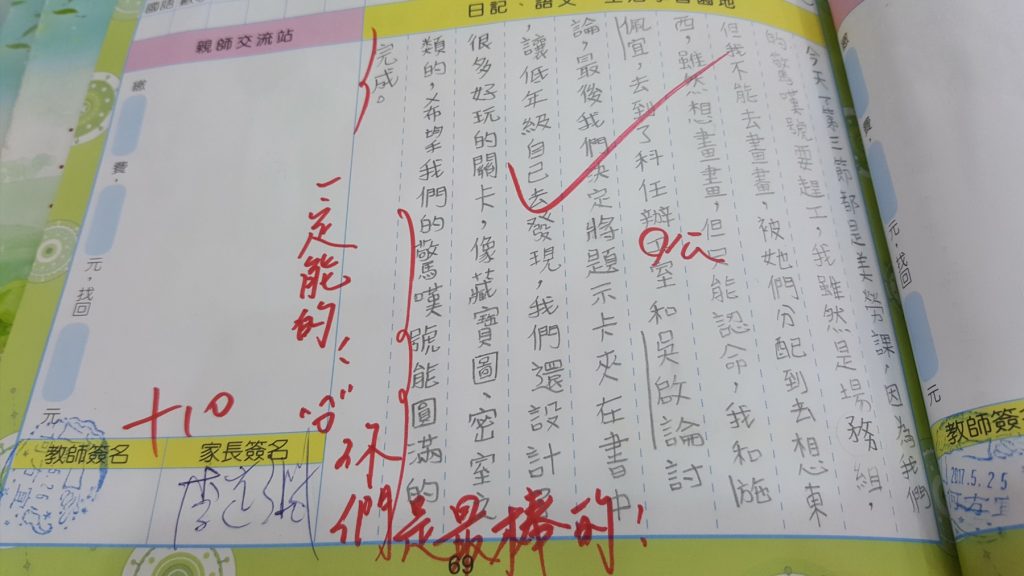 日記、語文、生活學習園地
今天第二、三節都是美勞課，因為我們
的驚嘆號要趕工，我雖然是場務組，
但我不能去畫畫，被她們分配到去想東
西，雖然想畫畫，但只能認命，我和施
佩宜，去到了科任辦工室和吳啟論討
公
論，最後我們決定將題示卡夾在書中
，讓低年級自己去發現，我們還設計
很多好玩的關卡，像藏寶圖、密室之
類的，希望我們的驚嘆號能圓滿的
完成。
一定能的！
你們是最棒的！
+10
親師交流站
繳 費 元，找回 元
教師簽名
家長簽名
69
費 元，找回 元
教師簽
2017.5.25